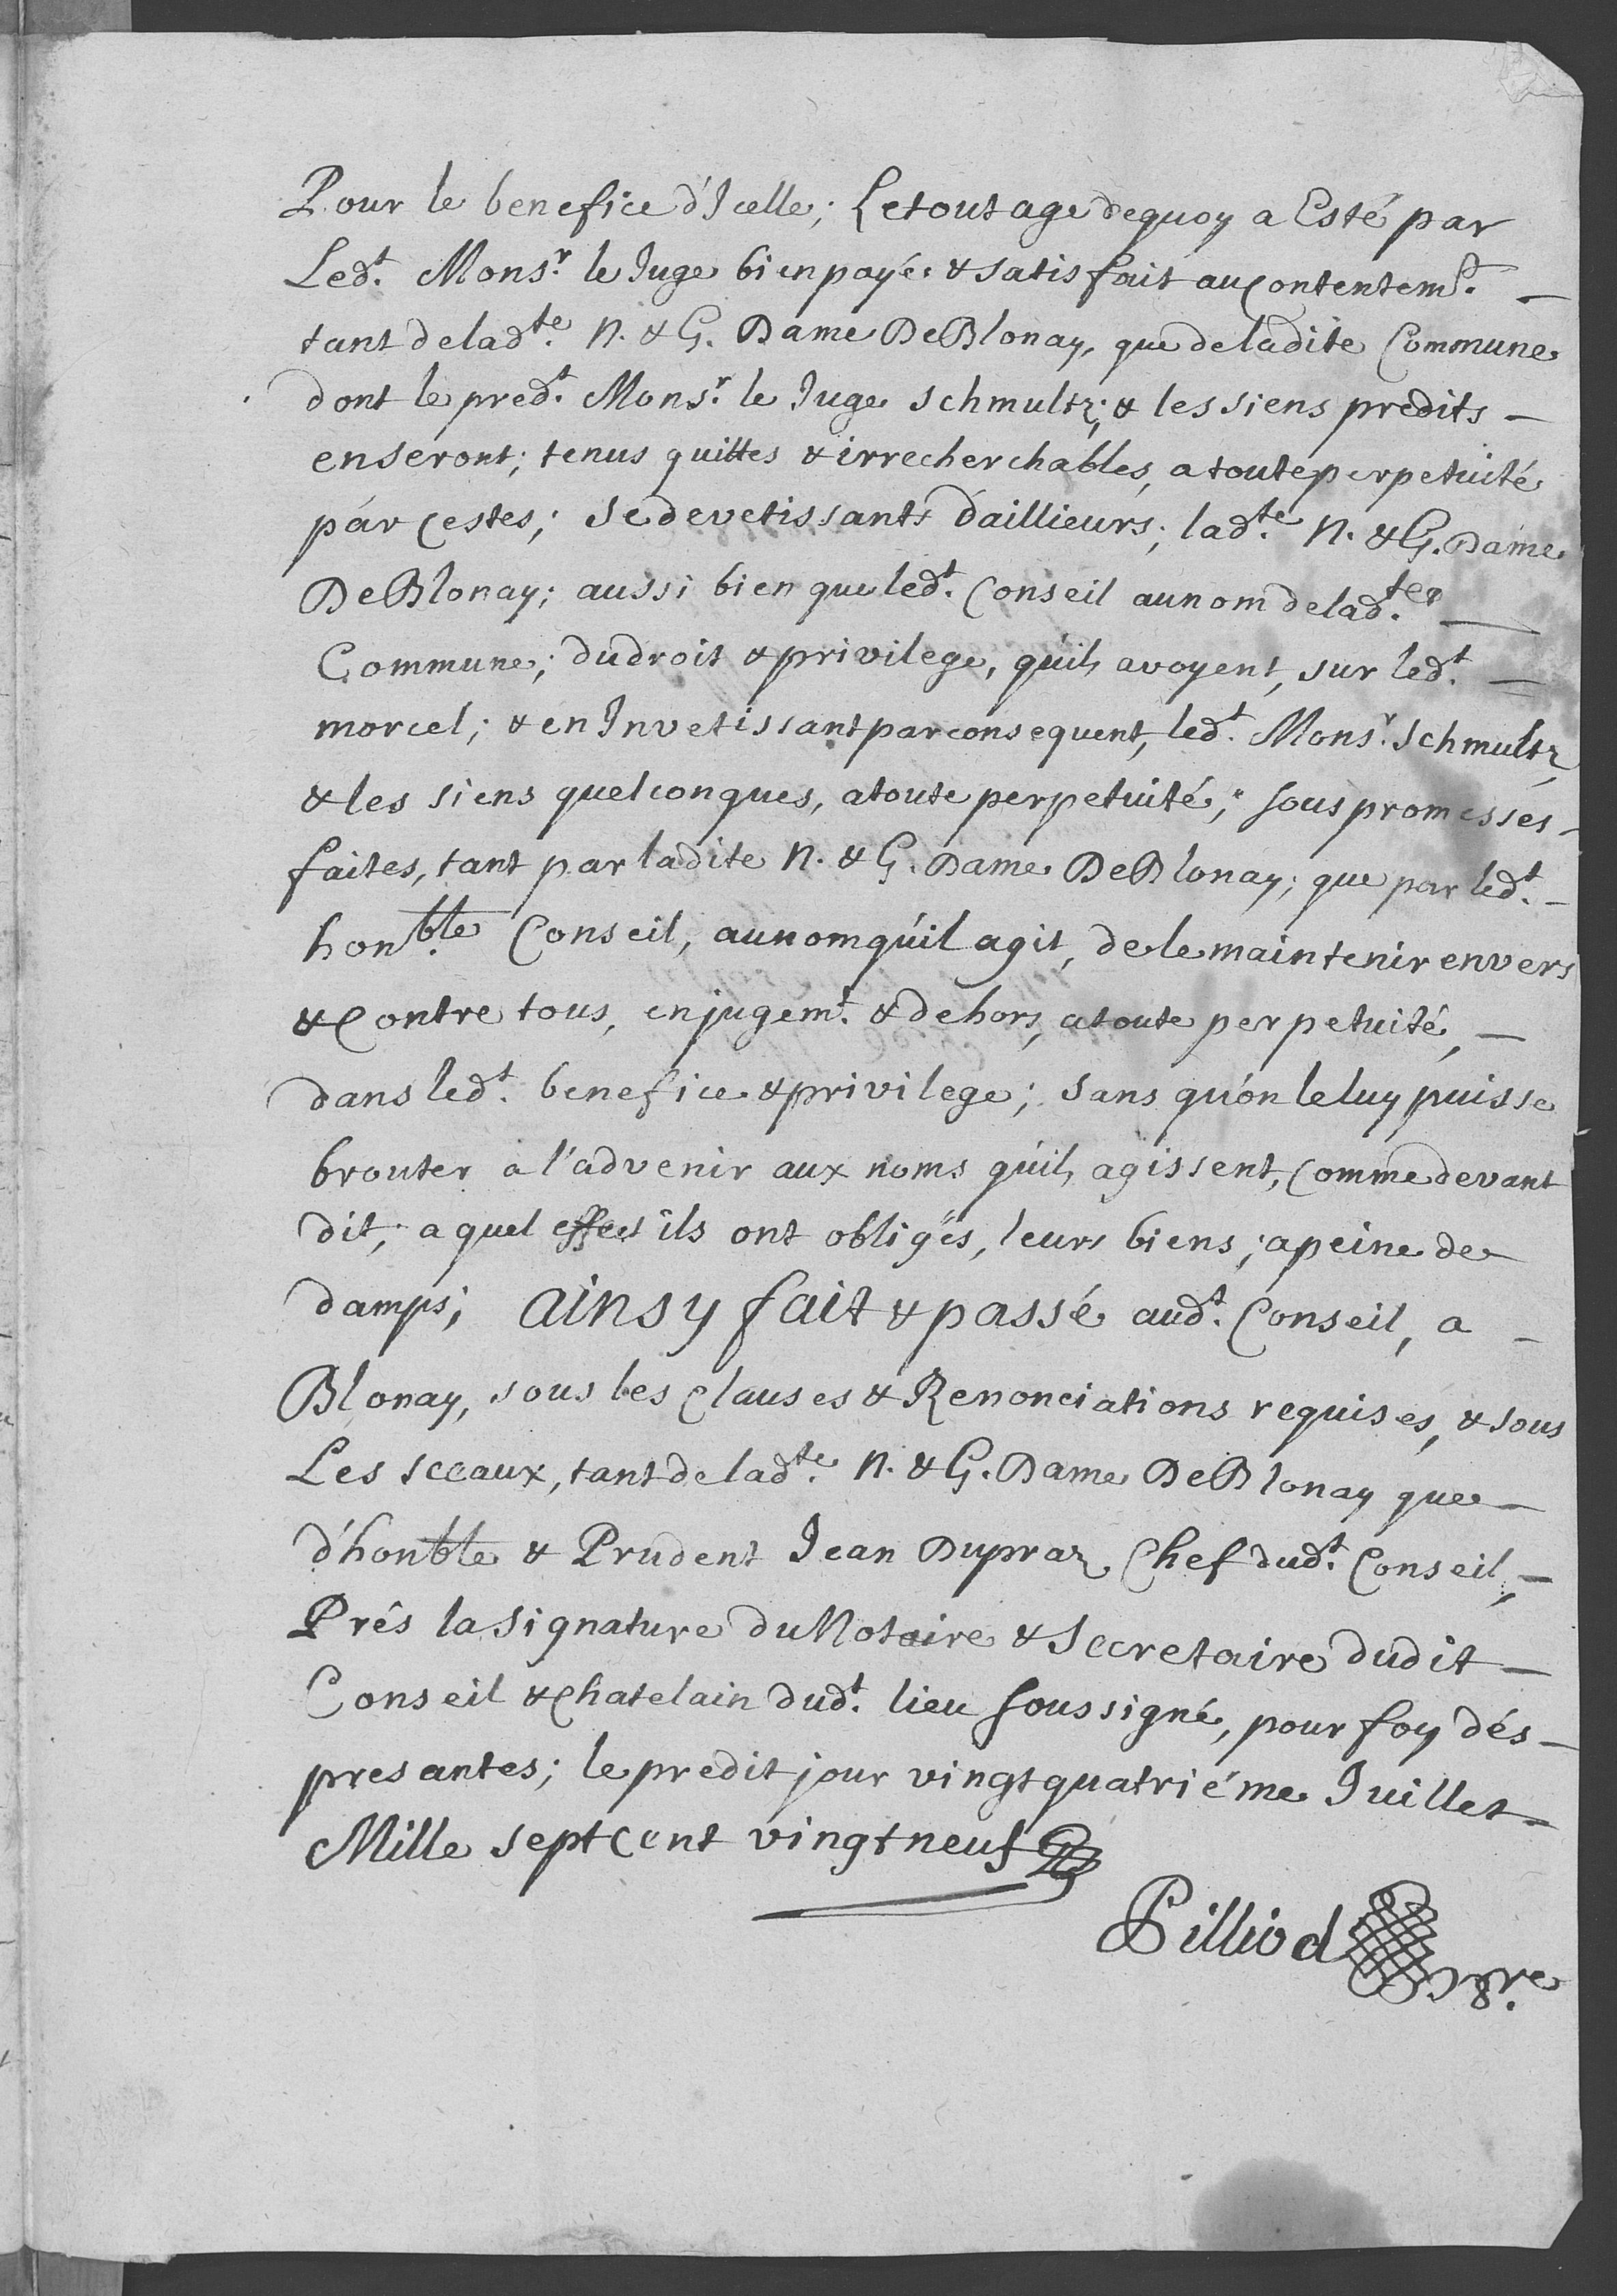 Pour le benefice d'Icelle; Le tout age dequoy a Esté par
Ledt. Monsr. le Juge bien payé & satisfait au Contentemt. –
tant de ladte. N. & G. Dame De Blonay, que de ladite Commune
dont le predt. Monsr. le Juge Schmultz; & les siens predits –
en seront; tenus quittes & irrecherchables, a toute perpetuité
par Cestes; Se devetissants d'aillieurs; ladte. N. & G. Dame
De Blonay; aussi bien que ledt. Conseil au nom de ladte. –
Commune; du droit & privilege, qu'ils avoyent, sur ledt. –
morcel; & en Invetissant par consequent, ledt. Monsr. Schmultz,
& les siens quelconques, a toute perpetuité; sous promesses –
faites, tant par ladite N. & G. Dame De Blonay; que par ledt. –
honble. Conseil, au nom qu'il agit, de le maintenir envers
& Contre tous, en jugemt. & dehors, a toute perpetuité, –
dans ledt. benefice & privilege; Sans qu'on le luy puisse
brouter a l'advenir aux noms qu'ils agissent, Comme devant
dit; a quel effect ils ont obligés, leurs biens; a peine de
damps; ainsy fait & passé audt. Conseil, a –
Blonay, sous les Clauses & Renonciations requises, & sous
Les sceaux, tant de ladte. N. & G. Dame De Blonay que –
d'honble & Prudent Jean Dupraz Chef dudt. Conseil, –
Prés la Signature du Notaire & Secretaire dudit –
Conseil & Chatelain dudt. lieu soussigné, pour foy dés –
presantes; le predit jour vingt quatriéme Juillet –
Mille sept Cent vingt neuf
Pilliod